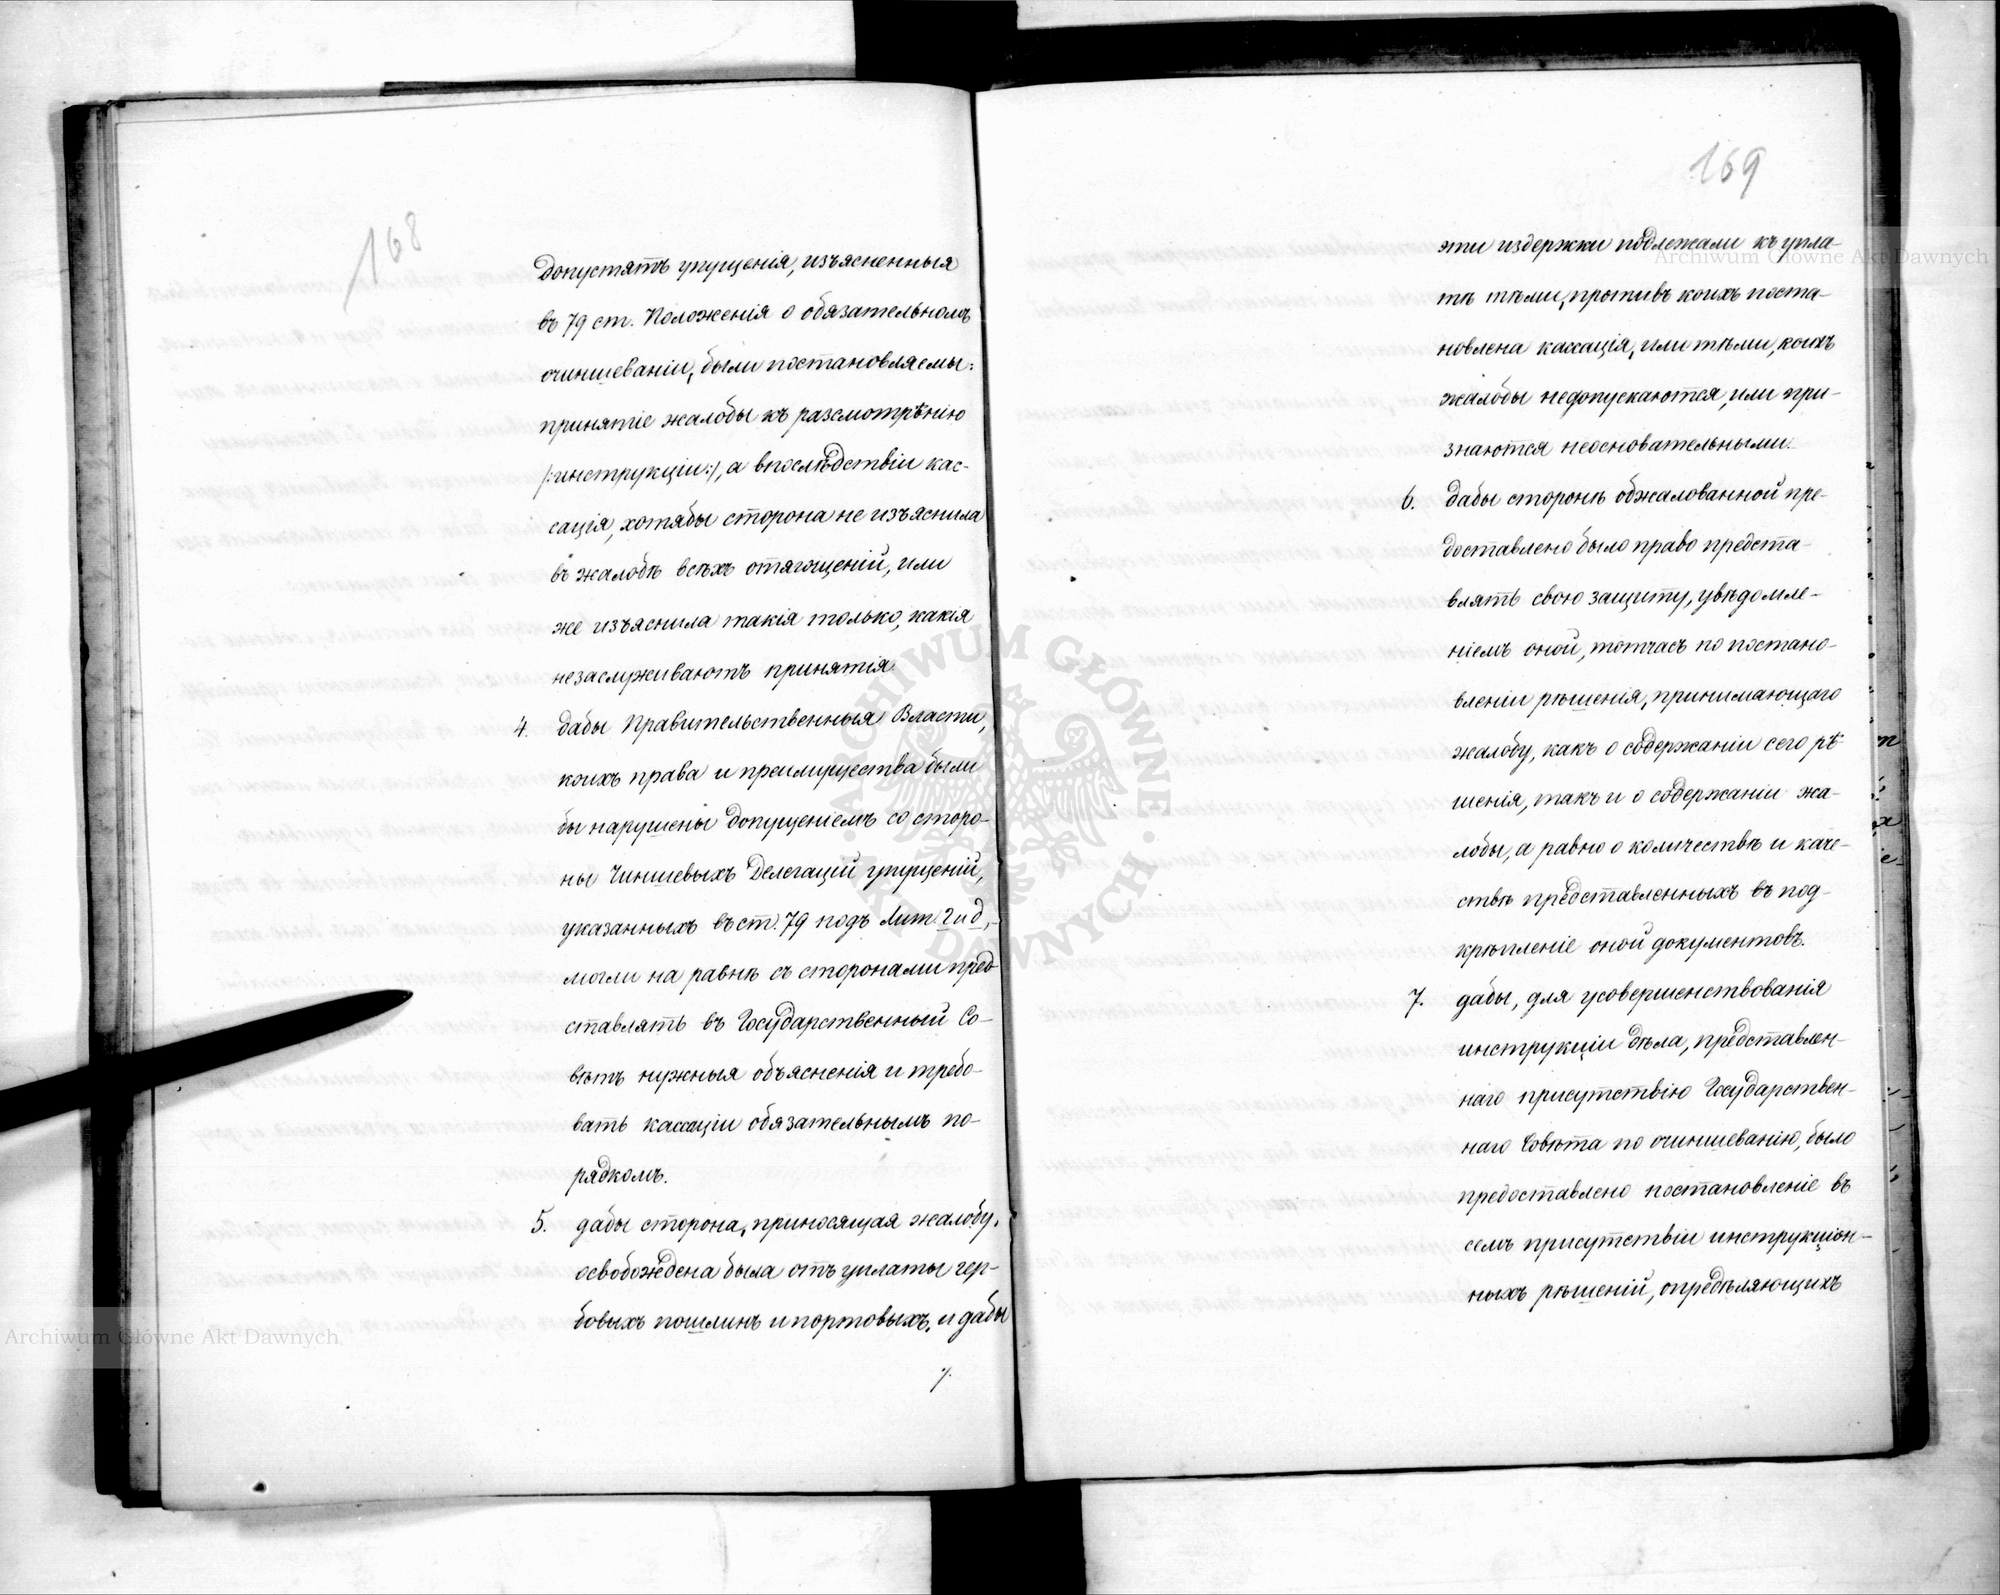 168
допустятъ упущенія, изъясненныя
въ 79 ст. Положенія о обязательномъ
очиншеваніи, были постановляемы:
принятіе жалобы къ разсмотрѣнію
/:инструкціи:/, а впослѣдствіи кас-
сація, хотябы сторона не изъяснила
въ жалобѣ всѣхъ отягощеній, или
же изъяснила такія только, какія
незаслуживаютъ принятія.
4. дабы Правительственныя Власти,
коихъ права и преимущества были
бы нарушены допущеніемъ со сторо-
ны Чиншевыхъ Делегацій упущеній,
указанныхъ въ ст. 79 подъ Лит. г и д,-
могли на равнѣ съ сторонами пред-
ставлять въ Государственный Со-
вѣтъ нужныя объясненія и требо-
вать кассаціи обязательнымъ по-
рядкомъ.
5. дабы сторона, приносящая жалобу,
освобождена была отъ уплаты гер-
бовыхъ пошлинъ и портовыхъ, и дабы
./.
169
эти издержки подлежали къ упла-
тѣ тѣми, противъ коихъ поста-
новлена кассація, или тѣми, коихъ
жалобы недопускаются, или при-
знаются неосновательными.
6. дабы сторонѣ обжалованной пре-
доставлено было право предста-
влять свою защиту, увѣдомле-
ніемъ оной, тотчасъ по постано-
вленіи рѣшенія, принимающаго
жалобу, какъ о содержаніи сего рѣ-
шенія, такъ и о содержаніи жа-
лобы, а равно о количествѣ и каче-
ствѣ представленныхъ въ под-
крѣпленіе оной документовъ.
7. дабы, для усовершенствованія
инструкціи дѣла, представлен-
наго присутствію Государствен-
наго Совѣта по очиншеванію, было
предоставлено постановленіе въ
семъ присутствіи инструкціон-
ныхъ рѣшеній, опредѣляющихъ
Archiwum Główne Akt Dawnych
Archiwum Główne Akt Dawnych
ARCHIWUM GŁÓWNE · AKT DAWNYCH ·